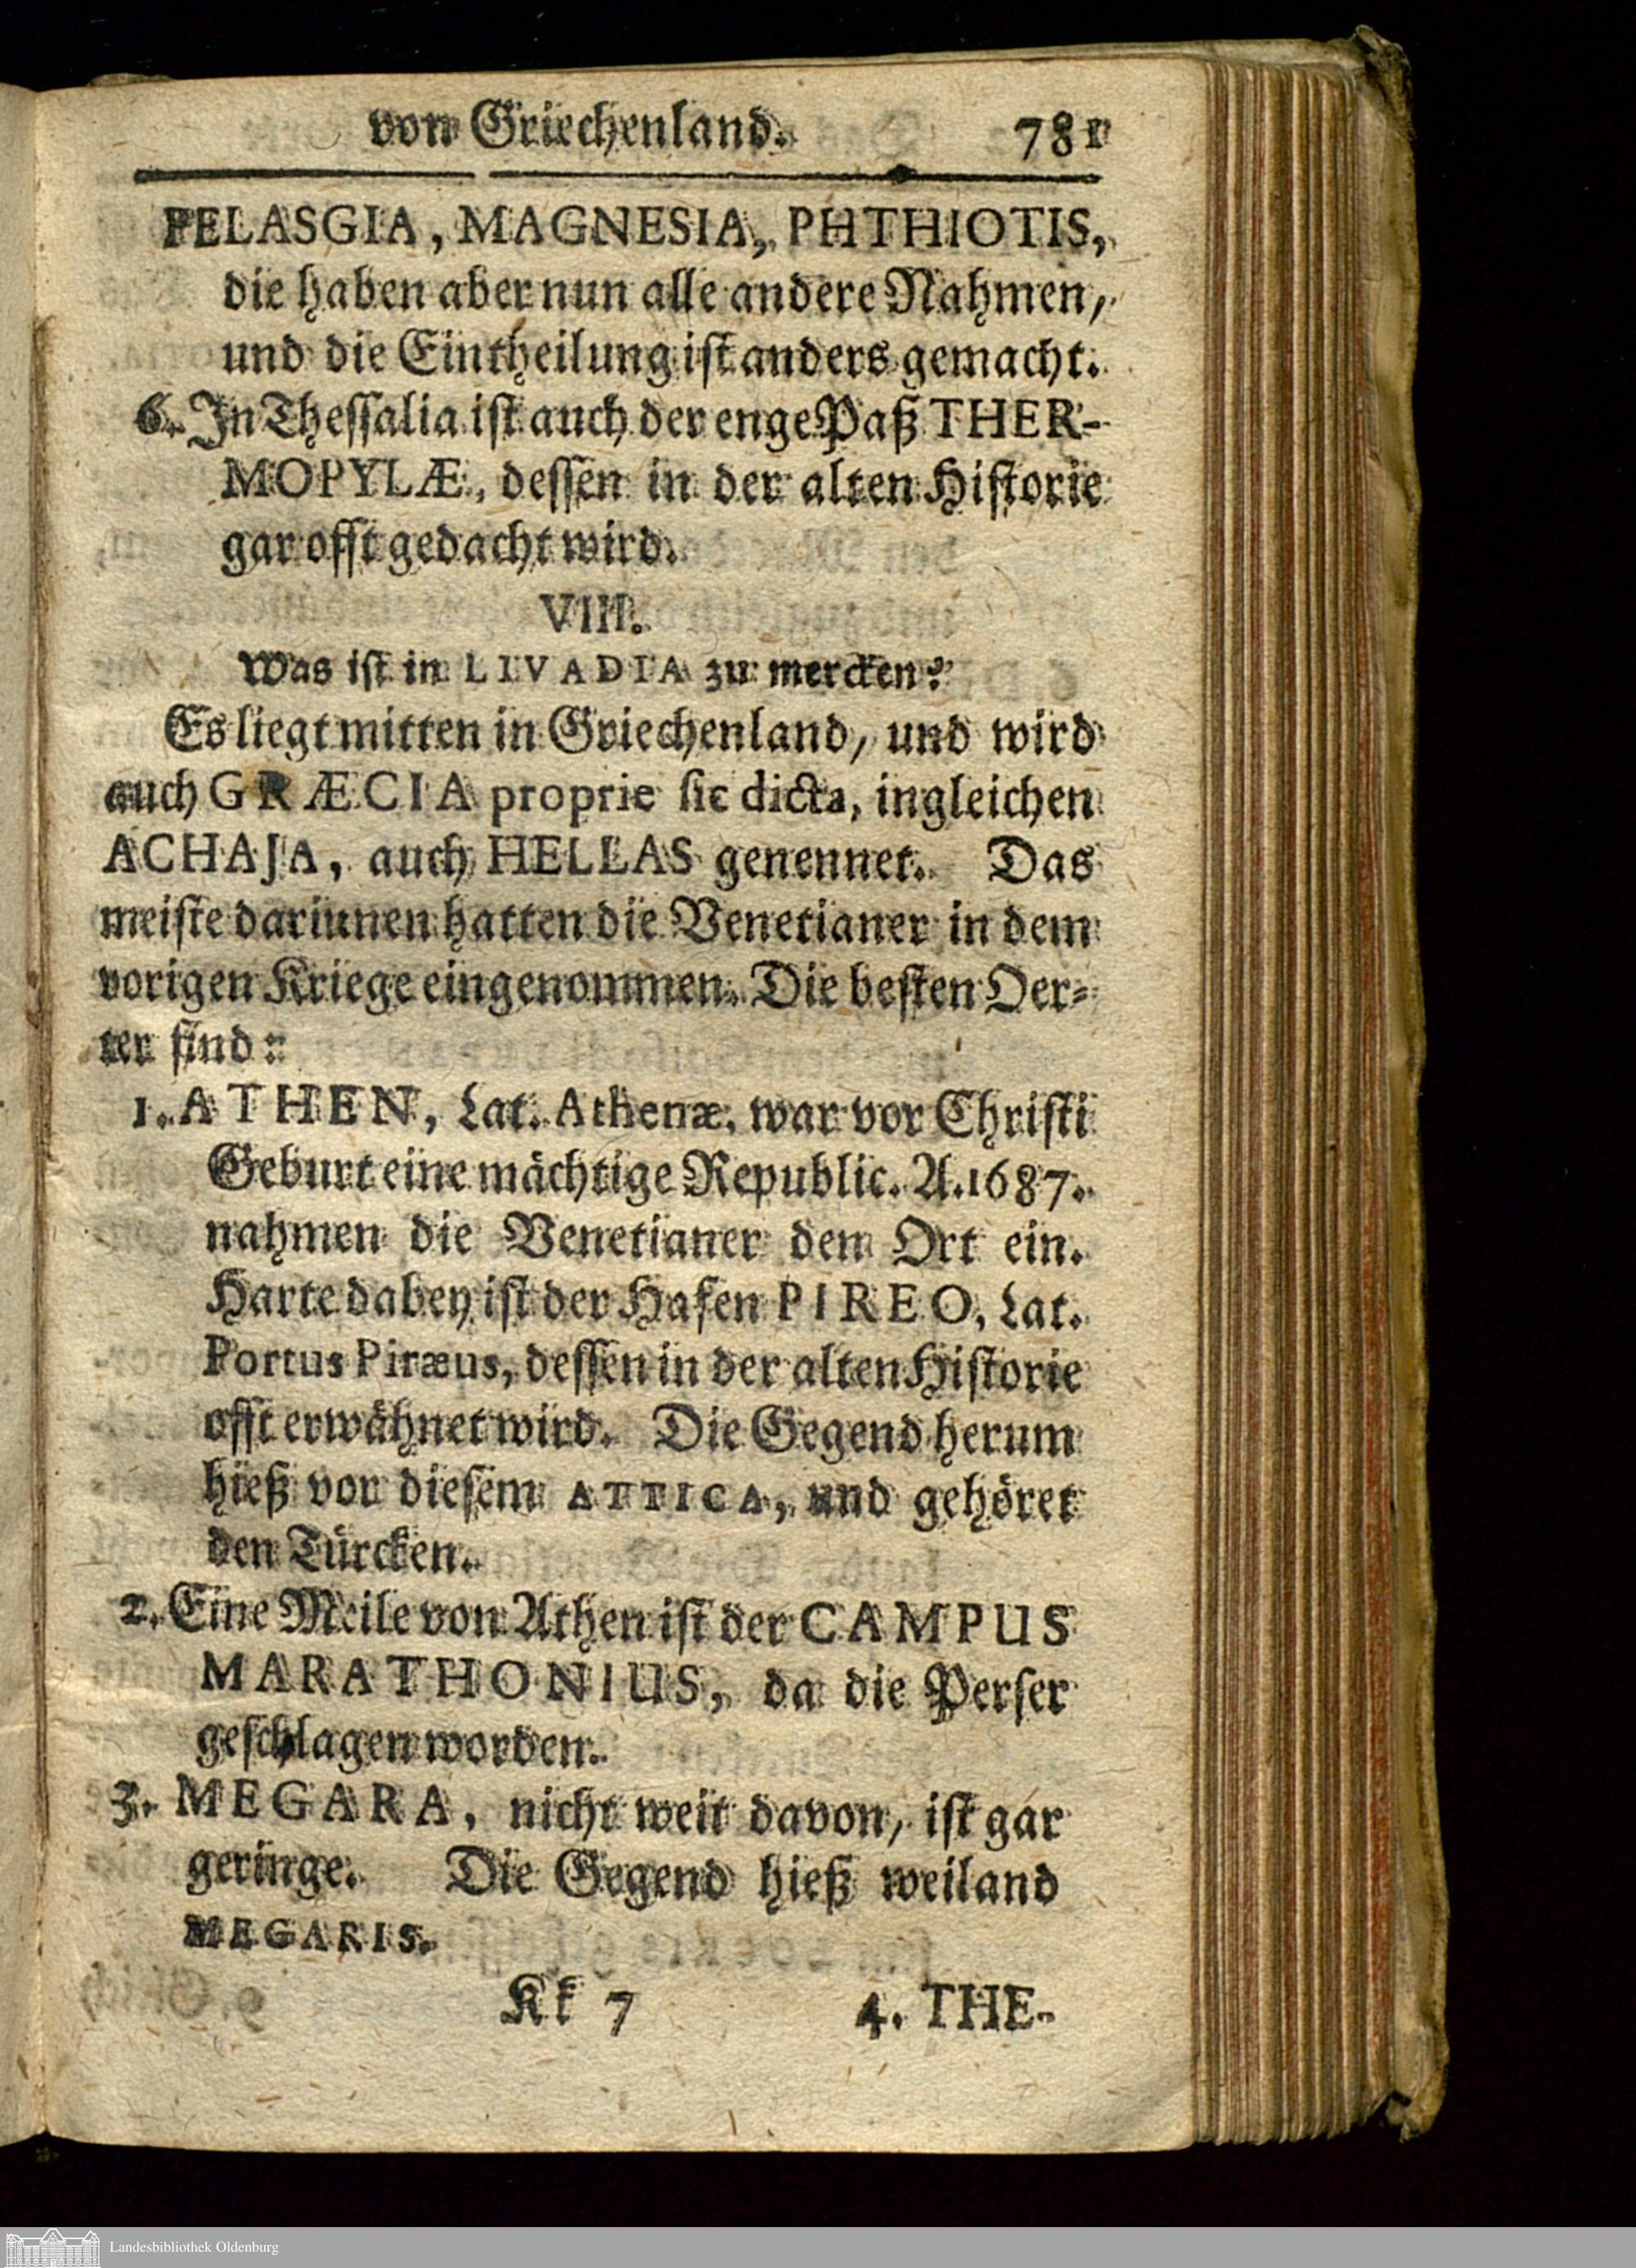 von Griechenland. 781
PELASGIA, MAGNESIA, PHTHIOTIS,
die haben aber nun alle andere Nahmen,
und die Eintheilung ist anders gemacht.
6. In Thessalia ist auch der enge Paß THER-
MOPYLÆ, dessen in der alten Historie
gar offt gedacht wird.
VIII.
Was ist in LIVADIA zu mercken?
Es liegt mitten in Griechenland, und wird
auch GRÆCIA proprie sic dicta, ingleichen
ACHAJA, auch HELLAS genennet. Das
meiste darinnen hatten die Venetianer in dem
vorigen Kriege eingenommen. Die besten Oer-
ter sind:
1. ATHEN, Lat. Athenæ, war vor Christi
Geburt eine mächtige Republic. A. 1687.
nahmen die Venetianer dem Ort ein.
Harte dabey ist der Hafen PIREO, Lat.
Portus Piræus, dessen in der alten Historie
offt erwähnet wird. Die Gegend herum
hieß vor diesem ATTICA, und gehöret
den Türcken.
2. Eine Meile von Athen ist der CAMPUS
MARATHONIUS, da die Perser
geschlagen worden.
3. MEGARA, nicht weit davon, ist gar
geringe. Die Gegend hieß weiland
MEGARIS.
Kk 7 4. THE-
Landesbibliothek Oldenburg